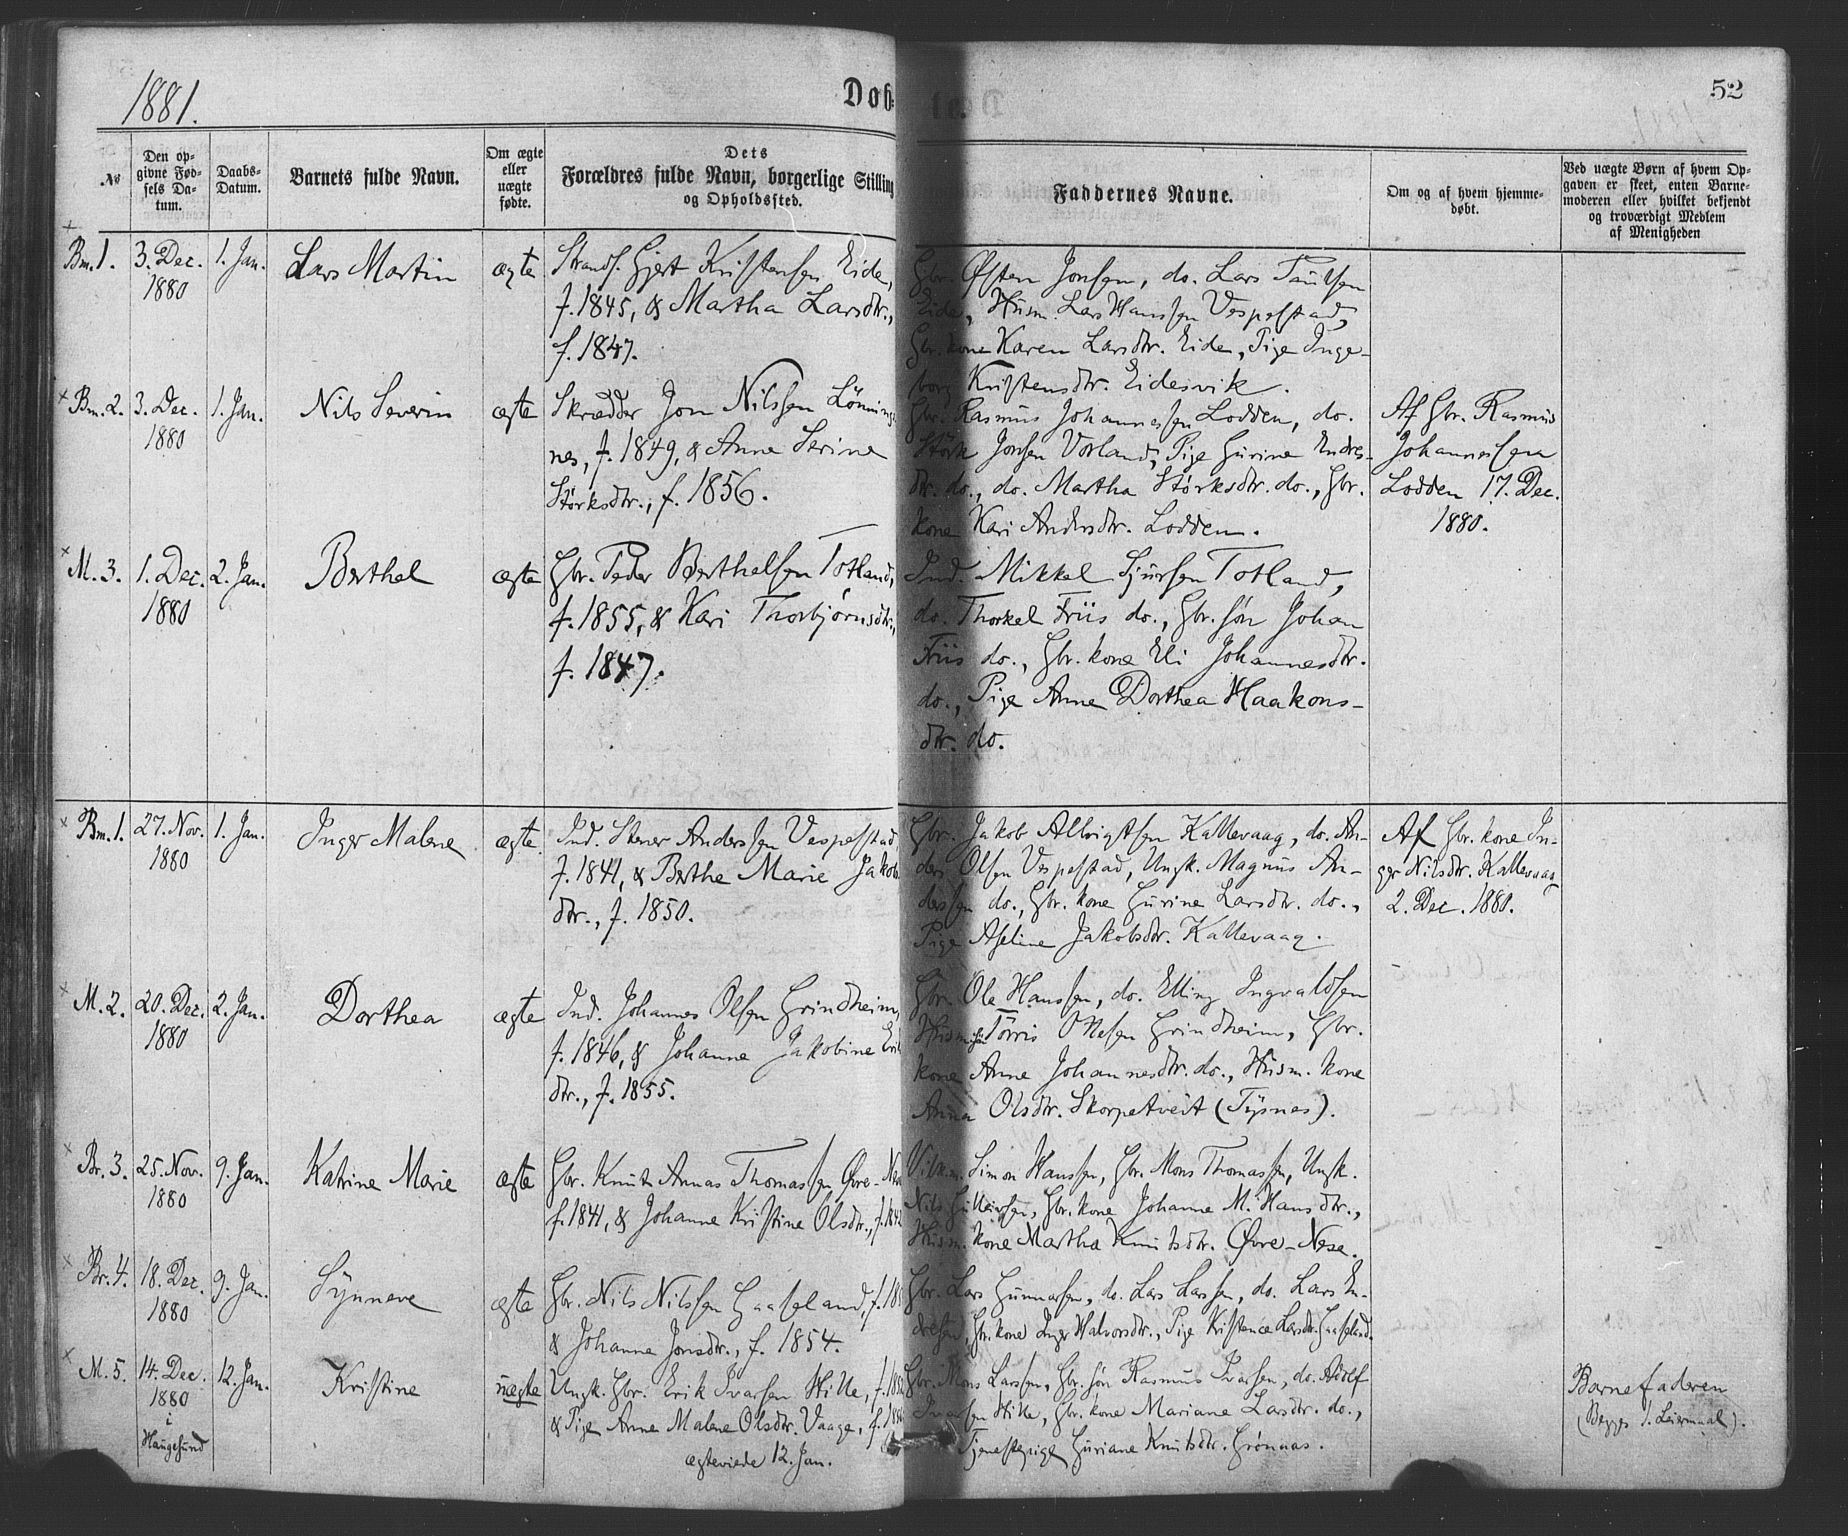 1881.
Døb
52
№
Den op-
givne Fød-
sels Da-
tum.
Daabs-
Datum.
Barnets fulde Navn.
Om ægte
eller
uægte
fødte.
Dets
Forældres fulde Navn, borgerlige Stilling
og Opholdssted.
Faddernes Navne.
Om og af hvem hjemme-
døbt.
Ved uægte Børn af hvem Op-
gaven er skeet, enten Barne-
moderen eller hvilket bekjendt
og troværdigt Medlem
af Menigheden
Bm. 1.
3. Dec.
1880
1. Jan.
Lars Martin
ægte
Strands. Gjert Kristensen Eide,
f. 1845, & Martha Larsdtr.,
f. 1847.
Gbr. Østen Jonsen, do. Lars Paulsen
Eide, Husm. Lars Hanssen Vespestad,
Gbr. kone Karen Larsdtr. Eide, Pige Inge-
borg Kristensdtr. Eidesvik.
Bm. 2.
3. Dec.
1880
1. Jan.
Nils Severin
ægte
Skrædder Jon Nilssen Lønnings-
nes, f. 1849, & Anna Serine
Størksdtr., f. 1856.
Gbr. Rasmus Johannessen Lodden, do.
Størk Jonsen Vorland, Pige Gurine Endres-
dtr. do., do. Martha Størksdtr. do., Gbr.
kone Kari Andersdtr. Lodden.
Af Gbr. Rasmus
Johannessen
Lodden 17. Dec.
1880.
M. 3.
1. Dec.
1880
2. Jan.
Berthel
ægte
Gbr. Peder Berthelsen Totland,
f. 1855, & Kari Thorbjørnsdtr.,
f. 1847.
Ind. Mikkel Sjursen Totland,
do. Thorkel Friis do., Gbr. søn Johan
Friis do., Gbr. kone Eli Johannesdtr.
do., Pige Anne Dorthea Haakons-
dtr. do.
Bm. 1.
27. Nov.
1880
1. Jan.
Inger Malene
ægte
Ind. Stener Anderssen Vespestad,
f. 1841, & Berthe Marie Jakobs
dtr., f. 1850.
Gbr. Jakob Albrigtsen Kallevaag, do. An-
ders Olsen Vespestad, Ungk. Magnus An-
dersen do., Gbr. kone Gurine Larsdtr. do.,
Pige Aseline Jakobsdtr. Kallevaag.
Af Gbr. kone In-
ger Nilsdtr. Kallevaag
2. Dec. 1880.
M. 2.
20. Dec.
1880
2. Jan.
Dorthea
ægte
Ind. Johannes Olsen Grindheim,
f. 1846, & Johanne Jakobine Eriks
dtr., f. 1855.
Gbr. Ole Hanssen, do. Elling Ingvaldsen
Husm. søn Tørris Ollesen Grindheim, Gbr.
kone Anne Johannesdtr. do., Husm. kone
Anna Olsdtr. Skorpetveit (Tysnes).
Br. 3.
25. Nov.
1880
9. Jan.
Katrine Marie
ægte
Gbr. Knut Annas Thomassen Øvre-Nese
f. 1841, & Johanne Kristine Olsdtr., f. 1842
Simon Hanssen, Gbr. Mons Thomassen, Ungk.
Nils Gulleiksen, Gbr. kone Johanne M. Hansdtr.,
Husm. kone Martha Knutsdtr. Øvre-Nese.
Br. 4.
18. Dec.
1880
9. Jan.
Synneve
ægte
Gbr. Nils Nilssen Gaaseland, f. 185
& Johanne Jonsdtr., f. 1854.
Gbr. Lars Gunnarsen, do. Lars Larssen, do. Lars En-
dresen, Gbr. kone Inger Halvorsdtr., Pige Kristence Larsdtr. Gaaseland.
M. 5.
14. Dec.
1880
i
Haugesund
12. Jan.
Kristine
uægte
Ungk. Gbr. Erik Ivarsen Hille, f. 185
& Pige Anne Malene Olsdtr. Vaage, f. 185
ægteviede 12. Jan.
Gbr. Mons Larssen, Gbr. søn Rasmus Ivarsen, do. Adolf
Ivarsen Hille, Gbr. kone Mariane Larsdtr. do.,
Tjenestepige Guriane Knutsdtr. Grønnas.
Barnefaderen
(Begges 1. Leiermaal).